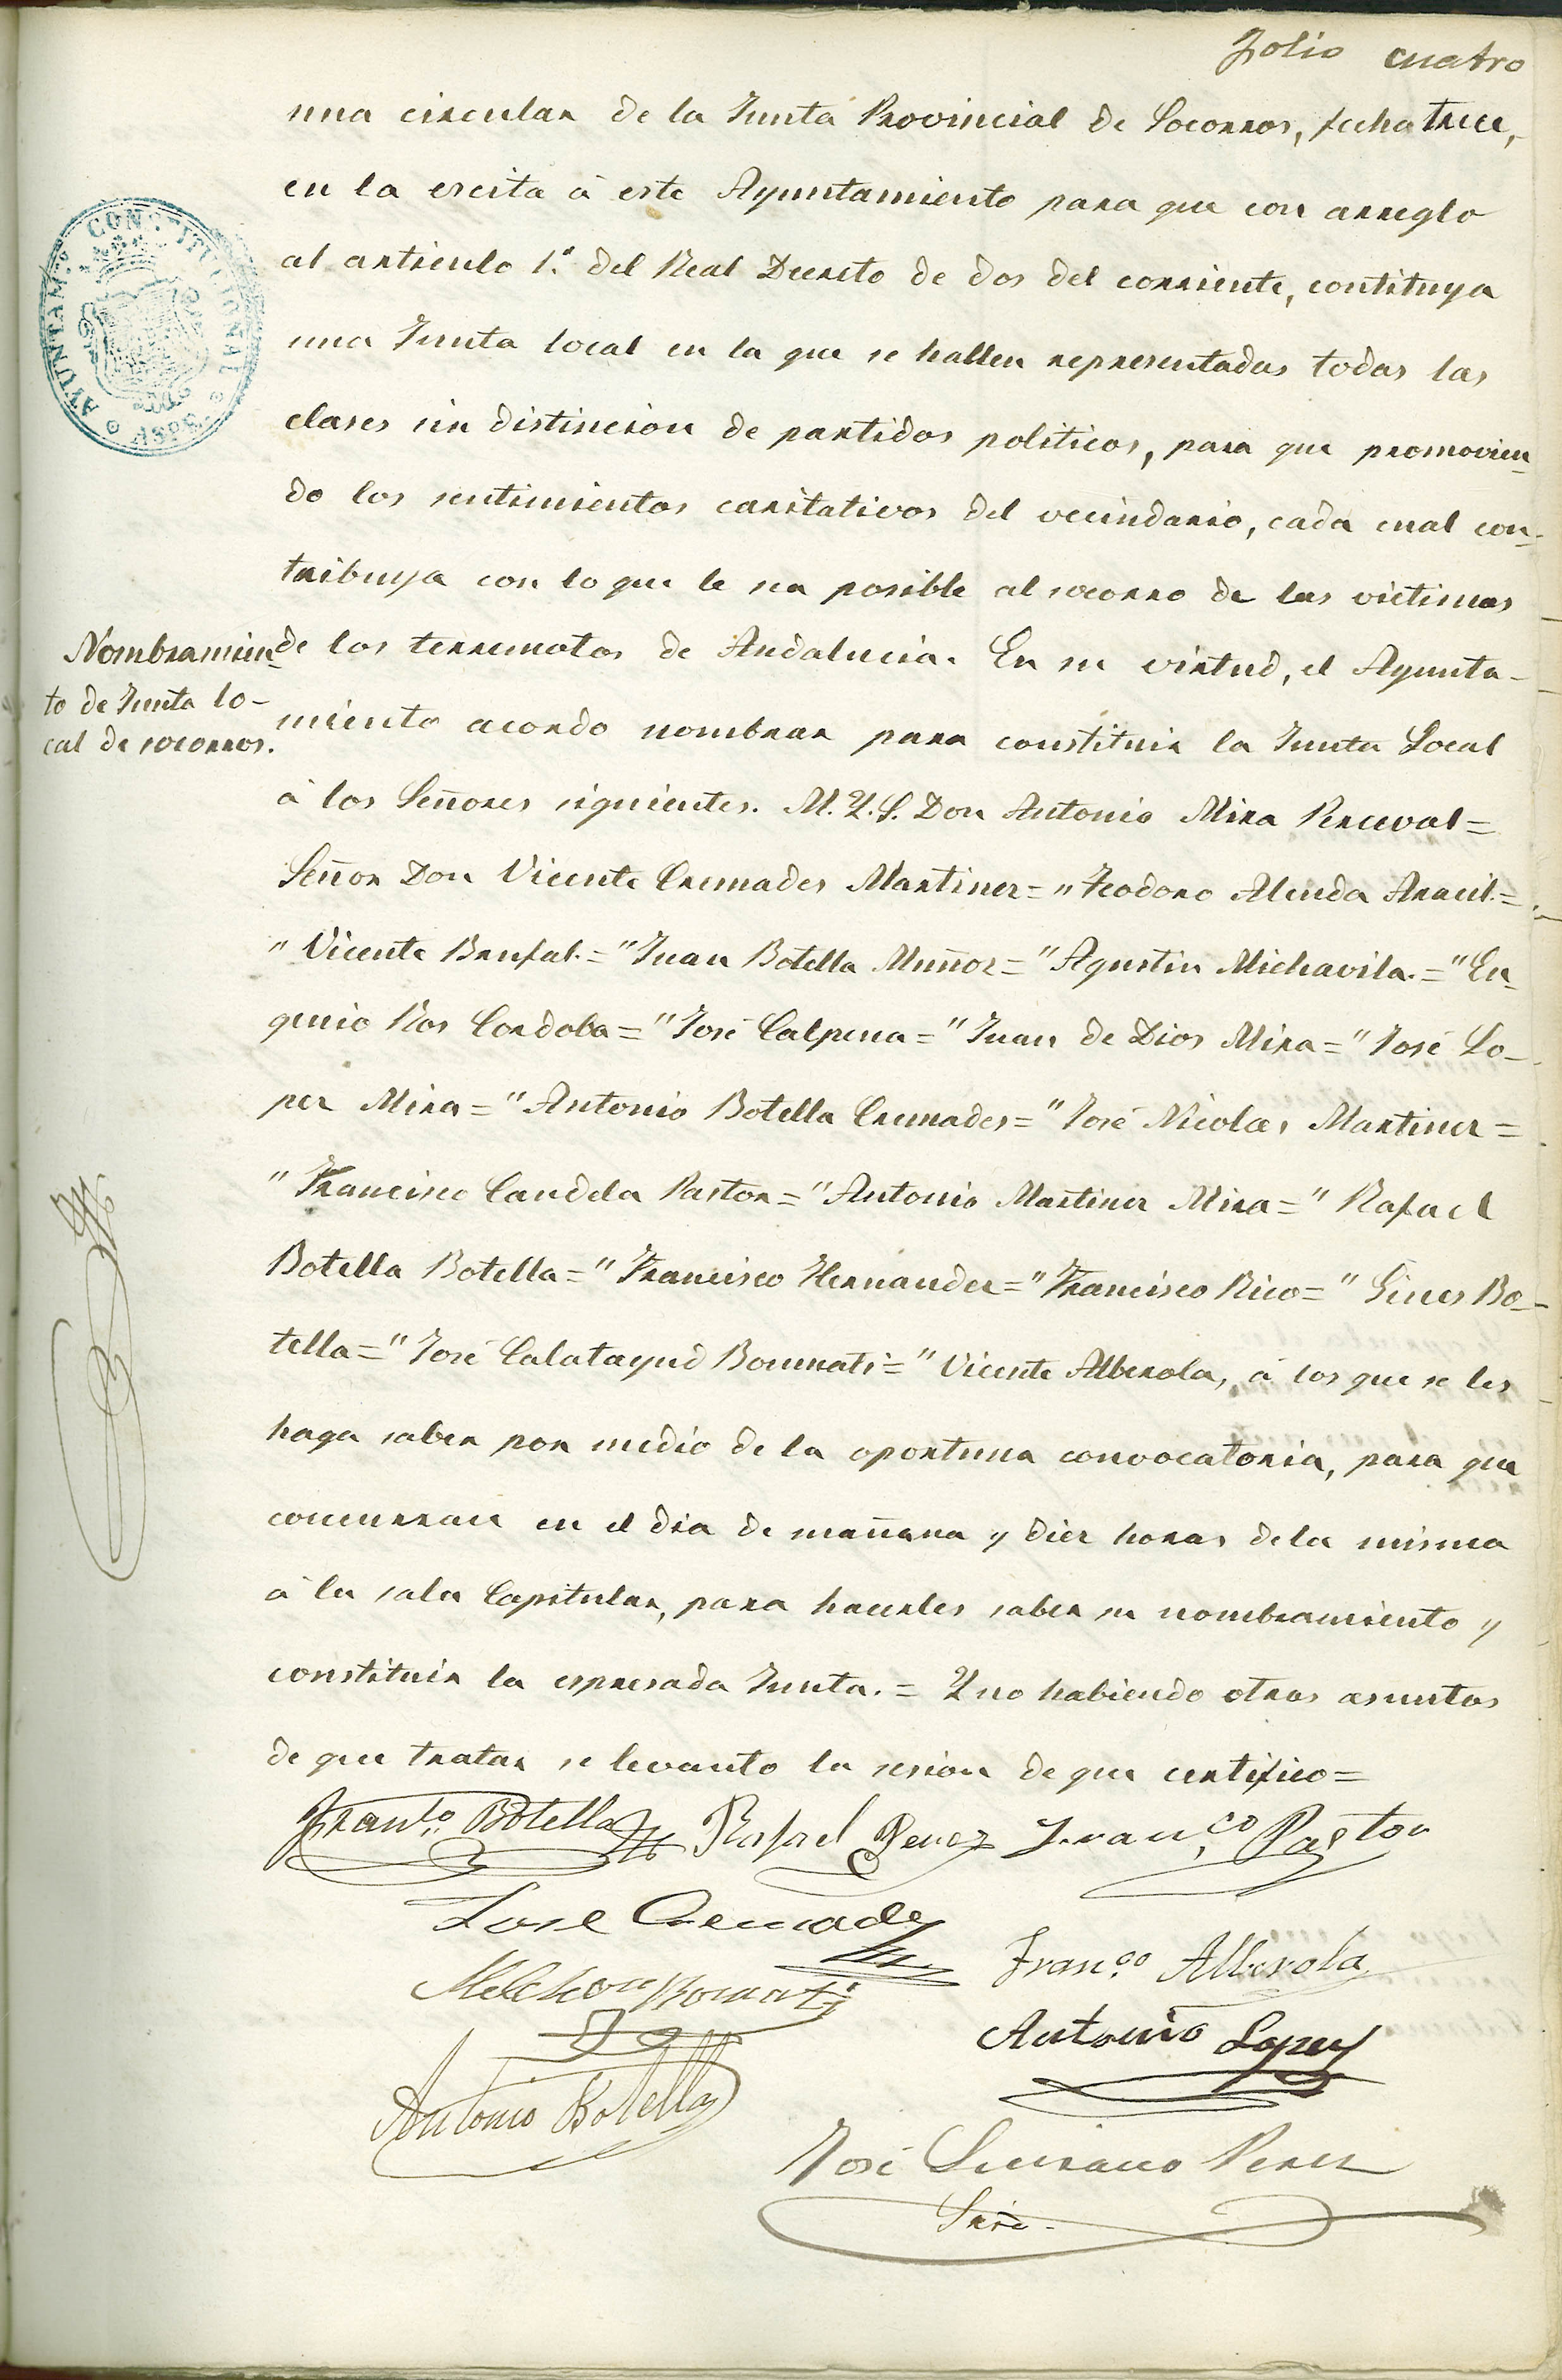 Folio cuatro
una circular de la Junta Provincial de Socorros, fecha trece,
en la escita á este Ayuntamiento para que con arreglo
al articulo 1.º del Real Decreto de dos del corriente, contituya
una Junta local en la que se hallen representadas todas las
clases sin distincion de partidos politicos, para que promovien-
do los sentimientos caritativos del vecindario, cada cual con-
tribuya con lo que le sea posible al socorro de las victimas
de los terremotos de Andalucia. En su virtud, el Ayunta-
Nombramien-
to de Junta lo-
cal de socorros.
miento acordo nombrar para constituir la Junta Local
á los Señores siguientes. M. Y. S. Don Antonio Mira Perceval=
Señor Don Vicente Cremades Martinez= " Teodoro Alenda Aracil.=
" Vicente Brufal.= " Juan Botella Muñoz= " Agustin Michavila.= " Eu-
genio Ros Cordoba= " José Calpena= " Juan de Dios Mira= " José Lo-
pez Mira= " Antonio Botella Cremades= " José Nicolas Martinez=
" Francisco Candela Pastor= " Antonio Martinez Mira= " Rafael
Botella Botella= " Francisco Hernandez= " Francisco Rico= " Gines Bo-
tella= " José Calatayud Bonmati= " Vicente Alberola, á los que se les
haga saber por medio de la oportuna convocatoria, para que
concurran en el dia de mañana y diez horas de la misma
á la sala Capitular, para hacerles saber su nombramiento y
constituir la espresada Junta.= Y no habiendo otros asuntos
de que tratar se levanto la sesion de que certifico=
Fran.co Botella Rafael Perez Fran.co Pastor
José Cremades
Fran.co Alberola
Melchor Bonmati
Antonio Lopez
Antonio Botella
José Luciano Perez
Srio.
AYUNTAM.TO CONSTITUCIONAL
ASPE